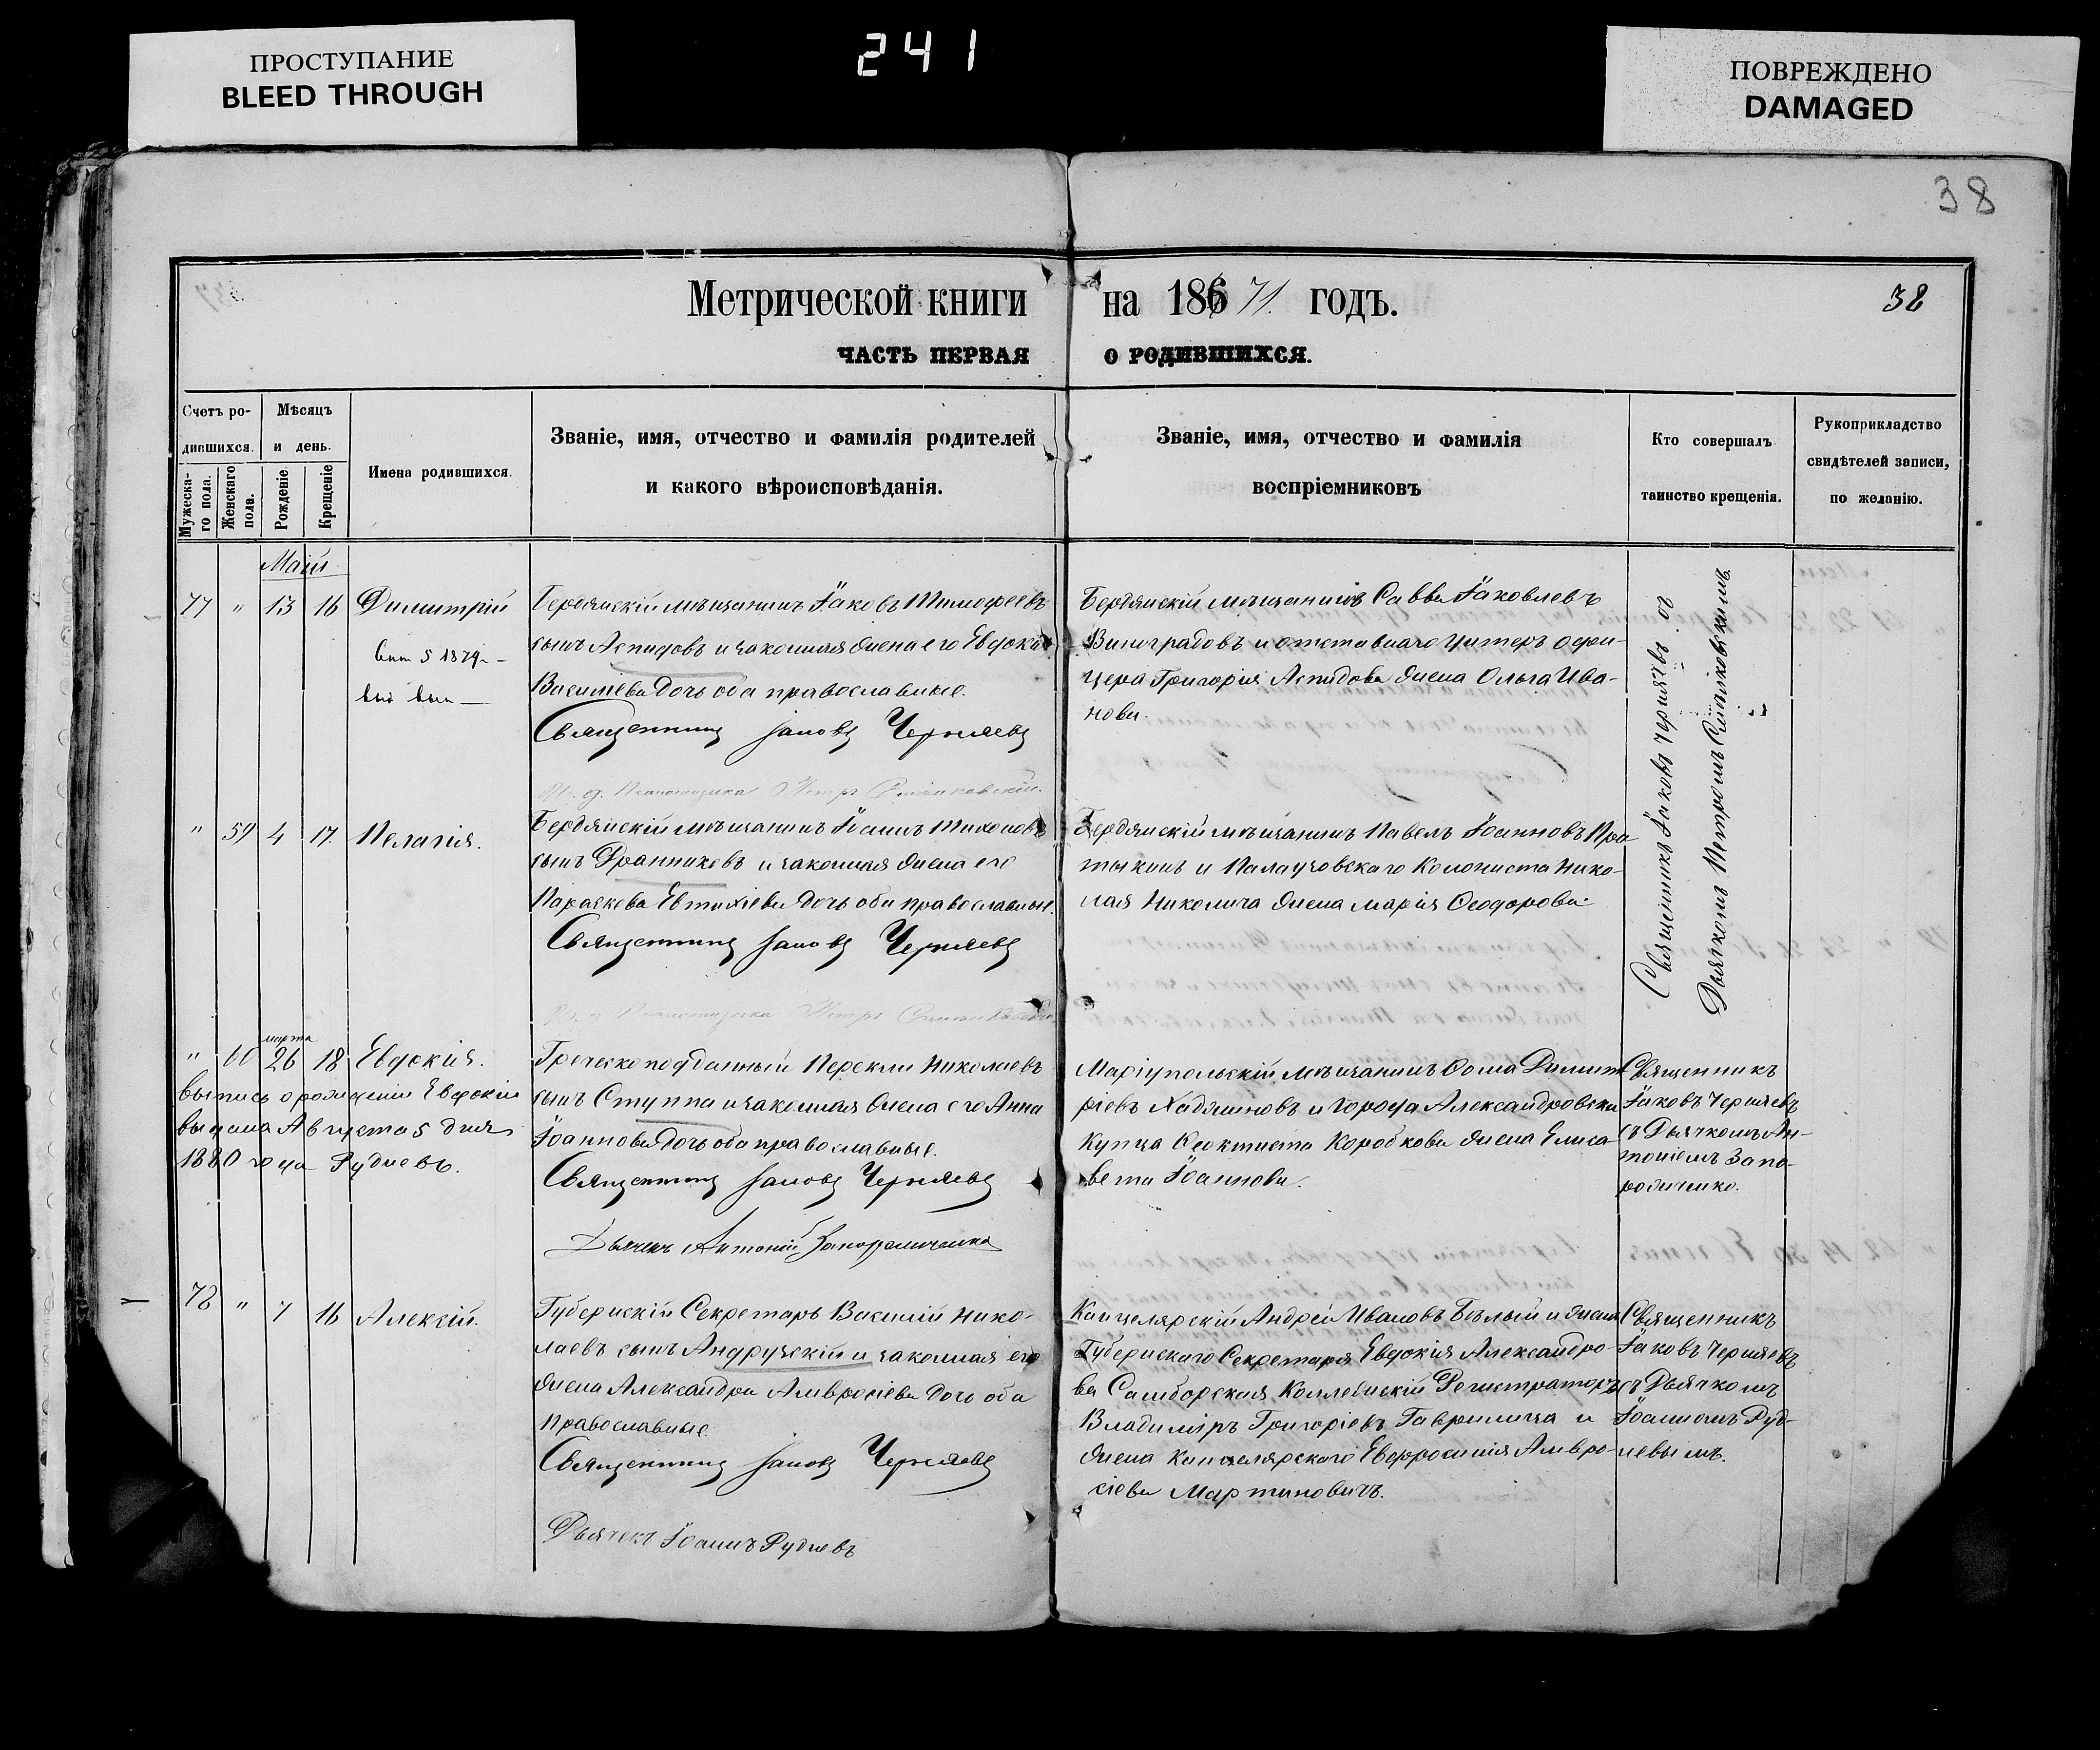 ПРОСТУПАНИЕ
BLEED THROUGH
241
ПОВРЕЖДЕНО
DAMAGED
38
Метрической книги на 186 71. годъ.
38
ЧАСТЬ ПЕРВАЯ О РОДИВШИХСЯ.
Счетъ ро-
дившихся.
Мужеска-
го пола.
Женскаго
пола.
Мѣсяцъ
и день.
Рожденіе
Крещеніе
Имена родившихся.
Званіе, имя, отчество и фамилія родителей
и какого вѣроисповѣданія.
Званіе, имя, отчество и фамилія
воспріемниковъ
Кто совершалъ
таинство крещенія.
Рукоприкладство
свидѣтелей записи,
по желанію.
Май
77 " 13 16 Димитрій
5 1879
Бердянскій мѣщанинъ Іаковъ Тимофеевъ
сынъ Аспидовъ и законная жена его Евдокія
Василіева дочь оба православные.
Священникъ Іаковъ Черняевъ
И. д. Псаломщика Петръ
Бердянскій мѣщанинъ Савва Іаковлевъ
Виноградовъ и отставнаго Унтеръ офи-
цера Григорія Аспидова жена Ольга Ива-
нова.
Священникъ Іаковъ Черняевъ съ
Дьячкомъ Петромъ
" 59 4 17. Пелагія.
Бердянскій мѣщанинъ Іоаннъ Тихоновъ
сынъ Дранниковъ и законная жена его
Параскева Евтихіева дочь оба православные.
Священникъ Іаковъ Черняевъ
И. д. Псаломщика Петръ
Бердянскій мѣщанинъ Павелъ Іоанновъ Про
тыкинъ и Палаузовскаго Колониста Нико-
лая Николича жена Марія Ѳеодорова.
марта
" 60 26 18 Евдокія.
Выпись о рожденіи Евдокіи
выдана Августа 5 дня
1880 года Рудневъ.
Греческоподданный Перекли Николаевъ
сынъ Ступпа и законная жена его Анна
Іоаннова дочь оба православные.
Священникъ Іаковъ Черняевъ
Дьячекъ Антоній Запорожченко
Маріупольскій мѣщанинъ Ѳома Димит
ріевъ Хаджиновъ и города Александровска
Купца Ѳеоктиста Коробкова жена Елиса
вета Іоаннова.
Священникъ
Іаковъ Черняевъ
съ Дьячкомъ Ан-
тоніемъ Запо-
рожченко.
78 " 7 16 Алексій.
Губернскій Секретарь Василій Нико-
лаевъ сынъ Андрузскій и законная его
жена Александра Амвросіева дочь оба
православные.
Священникъ Іаковъ Черняевъ
Дьячекъ Іоаннъ Рудневъ
Канцелярскій Андрей Ивановъ Бѣлый и жена
Губернскаго Секретаря Евдокія Александро-
ва Самборская Коллежскій Регистраторъ
Владиміръ Григорієвъ Гаврилица и
жена Канцелярскаго Евфросинія Амвро-
сіева Мартиновичъ.
Священникъ
Іаковъ Черняевъ
съ Дьячкомъ
Іоанномъ Руд-
невымъ.